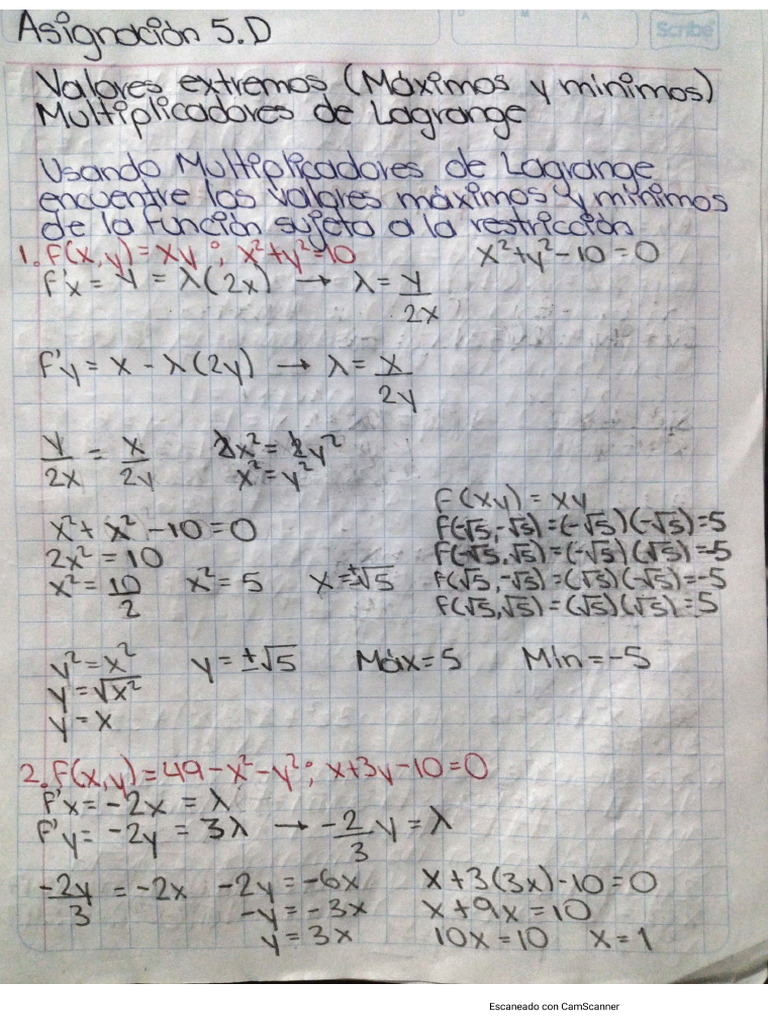 Asignación 5.D
Scribe
Valores extremos (Máximos y mínimos)
Multiplicadores de Lagrange
Usando Multiplicadores de Lagrange
encuentre los valores máximos y mínimos
de la función sujeto a la restricción
1. F(x,y)=xy ; x²+y²=10 x²+y²-10=0
F'x = y = λ(2x) → λ = y/2x
F'y = x - λ(2y) → λ = x/2y
y/2x = x/2y 2x² = 2y²
x² = y²
x² + x² - 10 = 0
2x² = 10
x² = 10/2 x² = 5 x = ±√5
F(xy) = xy
F(-√5,-√5) = (-√5)(-√5) = 5
F(-√5,√5) = (-√5)(√5) = -5
F(√5,-√5) = (√5)(-√5) = -5
F(√5,√5) = (√5)(√5) = 5
y² = x² y = ±√5 Máx = 5 Mín = -5
y = √x²
y = x
2. F(x,y) = 49 - x² - y² ; x+3y-10=0
F'x = -2x = λ
F'y = -2y = 3λ → -2/3 y = λ
-2y/3 = -2x -2y = -6x x+3(3x)-10=0
-y = -3x x+9x=10
y = 3x 10x=10 x=1
Escaneado con CamScanner